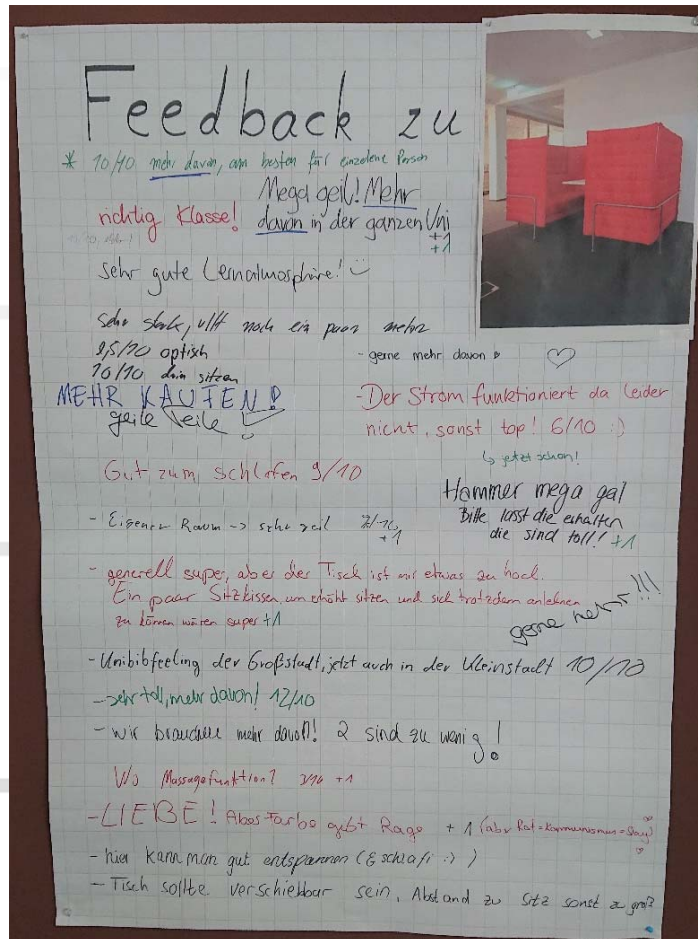 Feedback zu
* 10/10 mehr davon, am besten für einzelene Person
Mega geil! Mehr
davon in der ganzen Uni
+1
+1
richtig Klasse!
sehr gute Lernatmosphäre!
sehr stark, vllt noch ein paar mehr
9,5/10 optisch
10/10 drin sitzen
- gerne mehr davon
MEHR KAUFEN!
geile Teile
- Der Strom funktioniert da leider
nicht, sonst top! 6/10 :)
↳ jetzt schon!
Gut zum schlafen 9/10
Hammer mega gal
Bitte lasst die erhalten
die sind toll! +1
- Eigener Raum -> sehr geil
+1
- generell super, aber der Tisch ist mir etwas zu hoch.
Ein paar Sitzkissen, um erhöht sitzen und sich trotzdem anlehnen
zu können wären super +1
gerne mehr!!!
- Unibibfeeling der Großstadt, jetzt auch in der Kleinstadt 10/10
- sehr toll, mehr davon! 12/10
- wir brauchen mehr davon! 2 sind zu wenig!
Wo Massagefunktion? 3/10 +1
- LIEBE! Aber Farbe gibt Rage +1 (aber Rot = Kommunismus = Slay)
- hier kann man gut entspannen (& schlafi :) )
- Tisch sollte verschiebbar sein, Abstand zu Sitz sonst zu groß